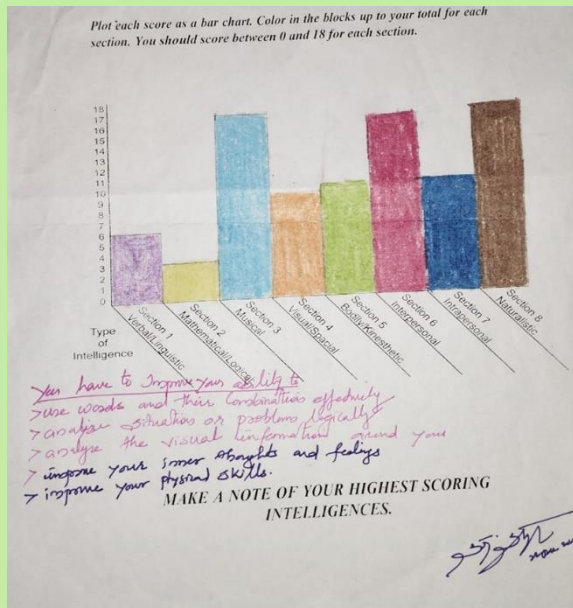 Plot each score as a bar chart. Color in the blocks up to your total for each
section. You should score between 0 and 18 for each section.
18
17
16
15
14
13
12
11
10
9
8
7
6
5
4
3
2
1
0
Type
of
Intelligence
Section 1
Verbal/Linguistic
Section 2
Mathematical/Logical
Section 3
Musical
Section 4
Visual/Spacial
Section 5
Bodily/Kinesthetic
Section 6
Interpersonal
Section 7
Intrapersonal
Section 8
Naturalistic
You have to Improve your ability to
> use words and their combination effectively
> analyse situation or problem logically
> analyse the visual information around you
> improve your inner thoughts and feelings
> improve your physical skills.
MAKE A NOTE OF YOUR HIGHEST SCORING
INTELLIGENCES.